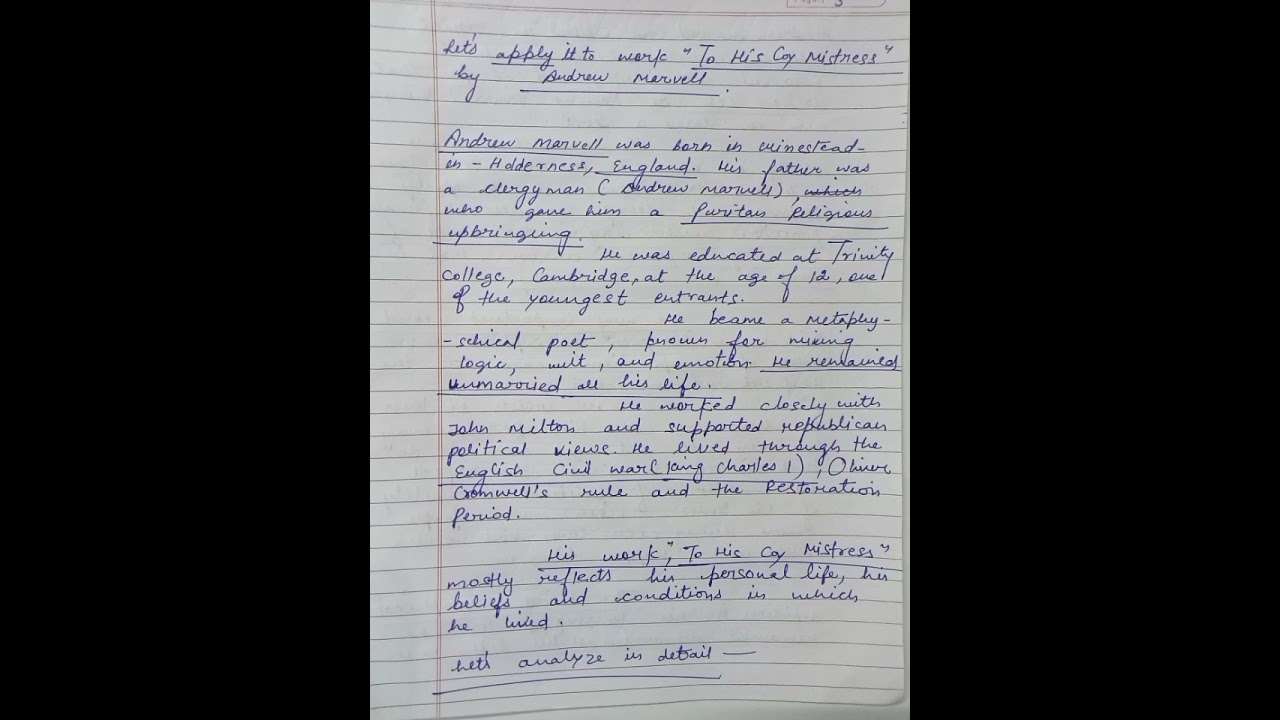 3
Let's apply it to work "To His Coy Mistress"
by Andrew Marvell.
Andrew Marvell was born in Winestead-
in-Holderness, England. His father was
a clergyman (Andrew Marvell), which
who gave him a Puritan Religious
upbringing.
He was educated at Trinity
College, Cambridge, at the age of 12, one
of the youngest entrants.
He became a Metaphy-
-sical poet, known for mixing
logic, wit, and emotion. He remained
unmarried all his life.
He worked closely with
John Milton and supported republican
political views. He lived through the
English Civil war (king Charles 1), Oliver
Cromwell's rule and the Restoration
Period.
His work, "To His Coy Mistress"
mostly reflects his personal life, his
beliefs and conditions in which
he lived.
Let's analyze in detail —